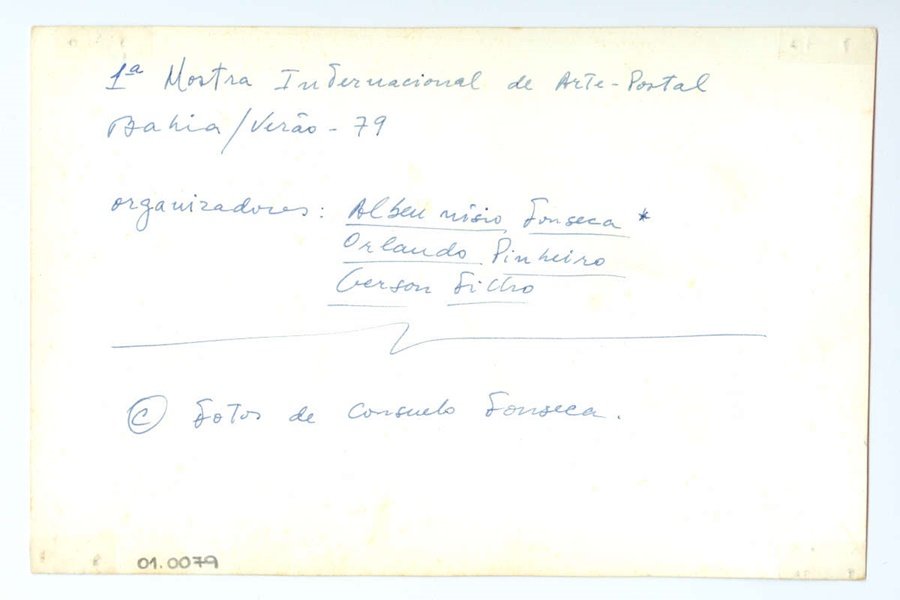 1ª Mostra Internacional de Arte-Postal
Bahia/Verão - 79
organizadores: Albenísio Fonseca *
Orlando Pinheiro
Gerson Filho
© Fotos de Consuelo Fonseca.
01.0079